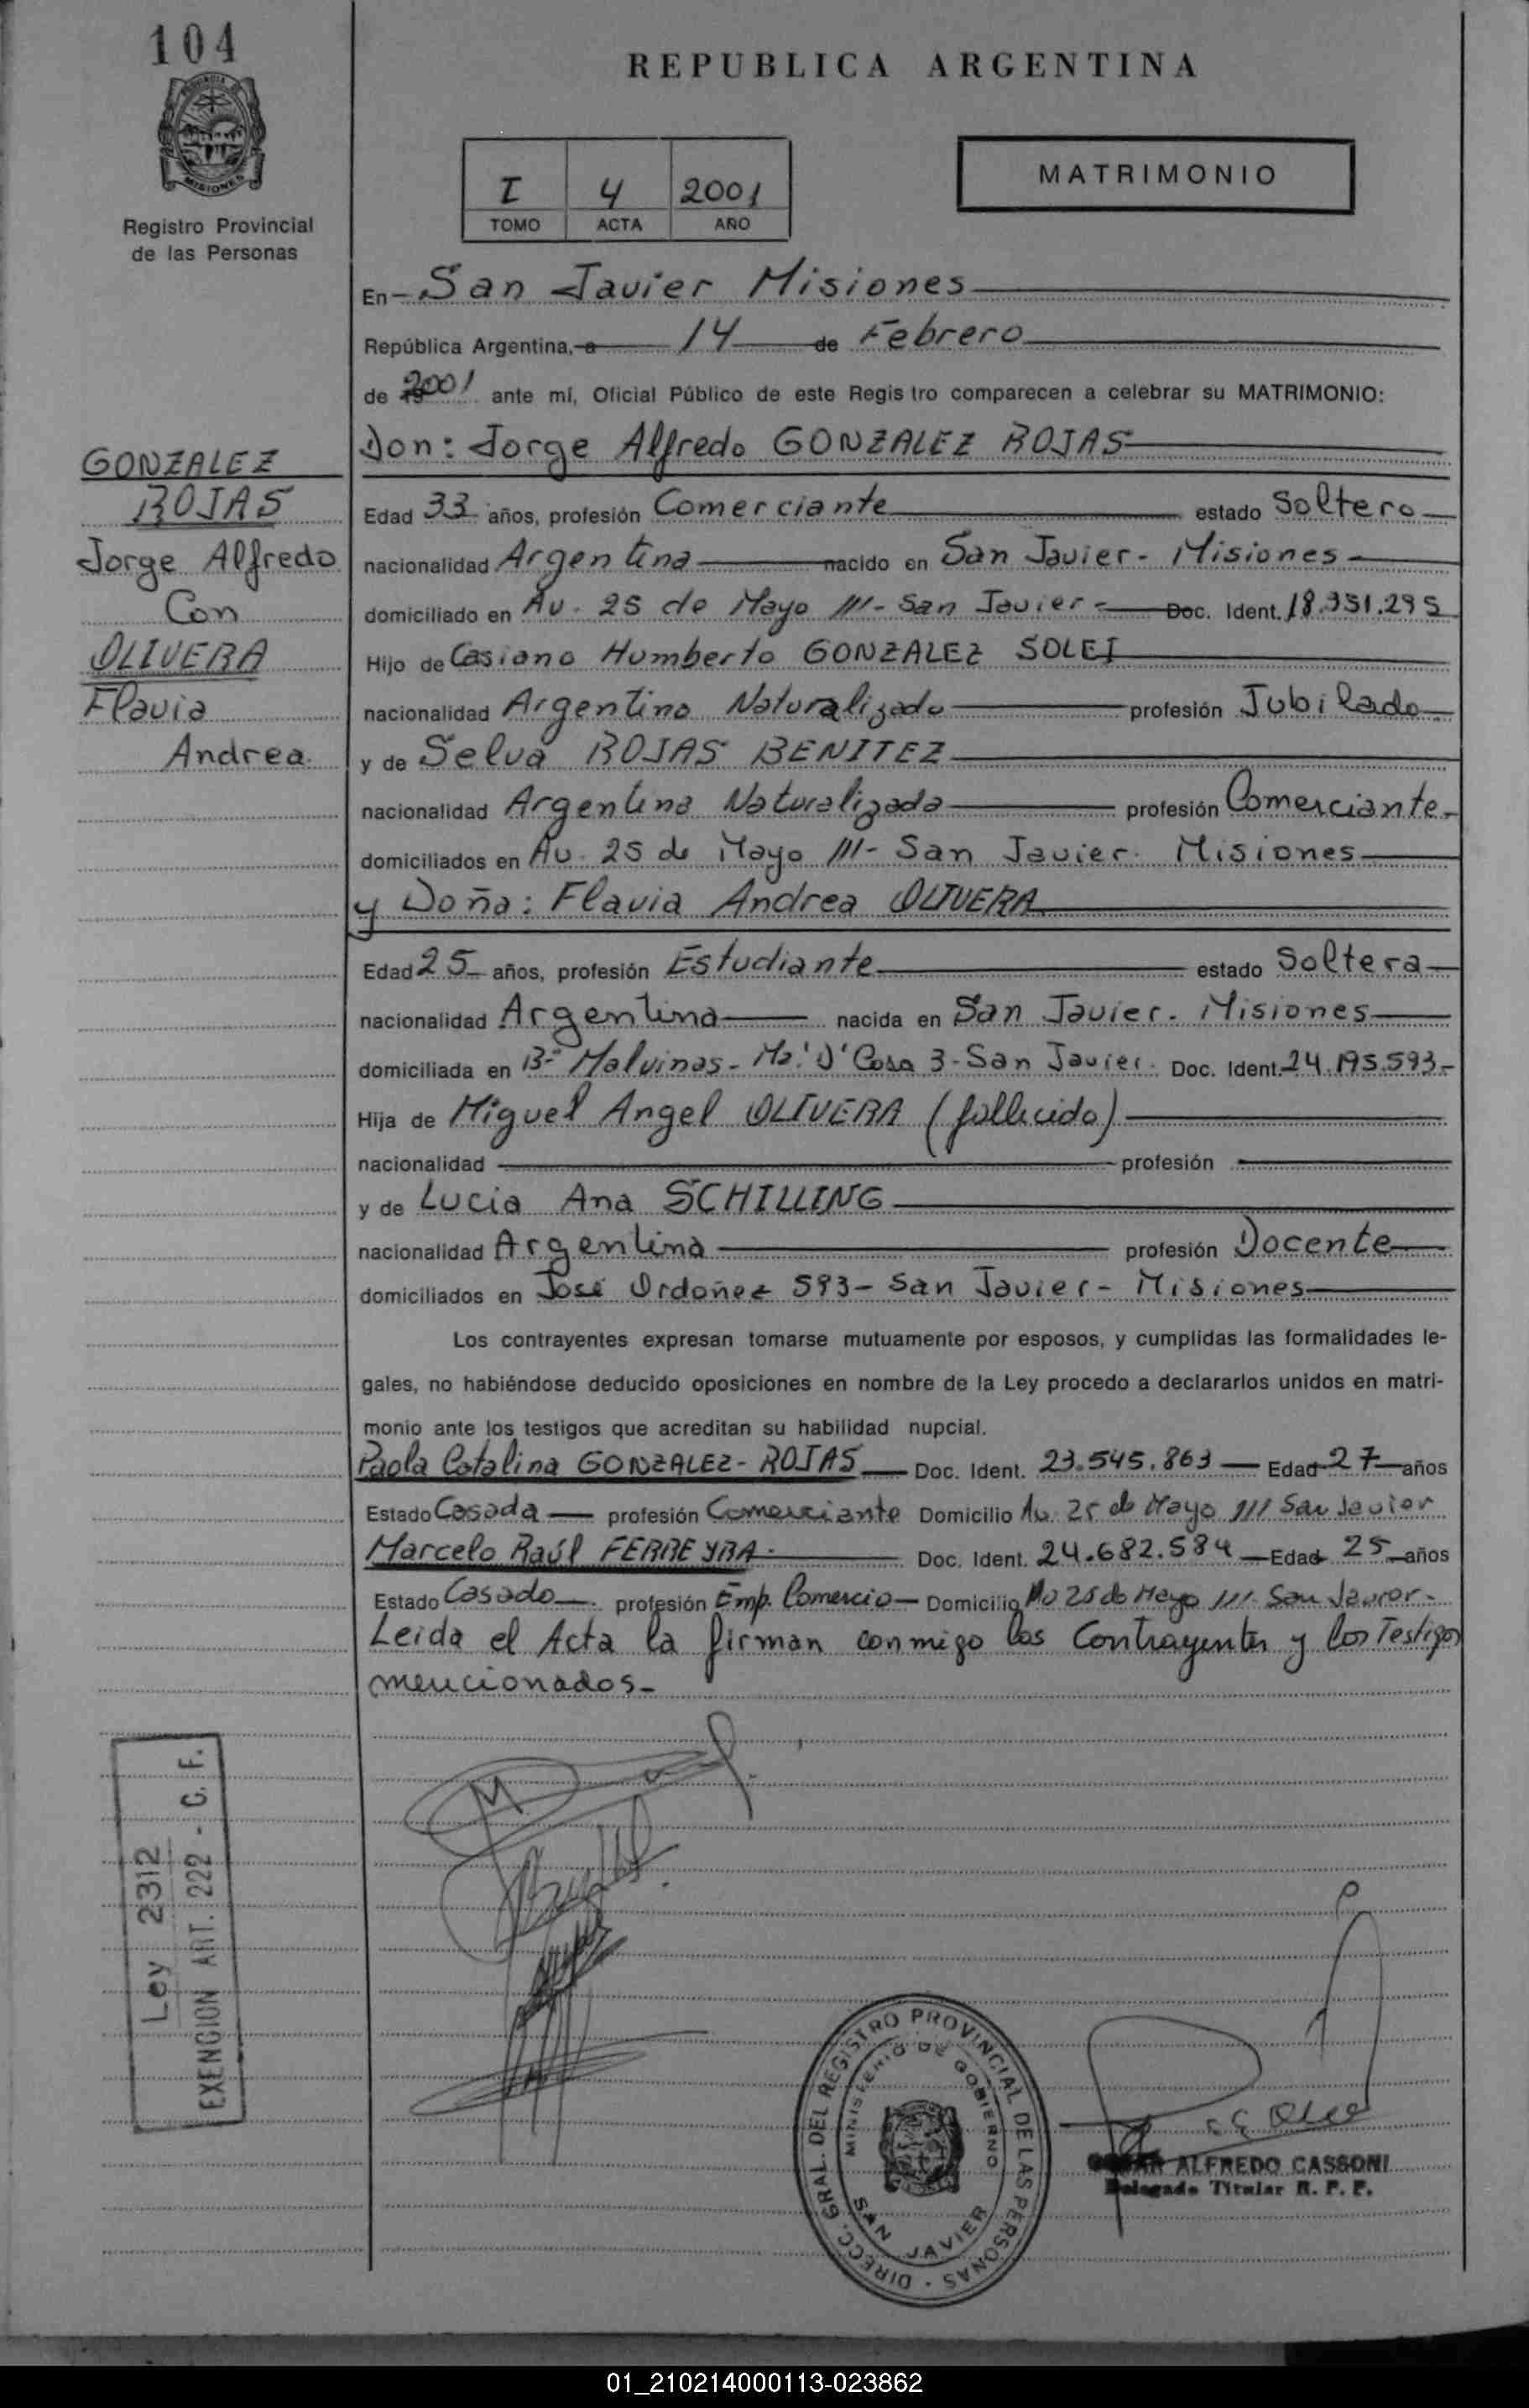 104
REPUBLICA ARGENTINA
MISIONES
Registro Provincial
de las Personas
I 4 2001
TOMO ACTA AÑO
MATRIMONIO
En - San Javier Misiones
República Argentina, a 14 de Febrero
de 2001 ante mí, Oficial Público de este Regis tro comparecen a celebrar su MATRIMONIO:
Don: Jorge Alfredo GONZALEZ ROJAS
GONZALEZ
ROJAS
Jorge Alfredo
Con
OLIVERA
Flavia
Andrea.
Edad 33 años, profesión Comerciante estado Soltero
nacionalidad Argentina nacido en San Javier - Misiones
domiciliado en Av. 25 de Mayo 111 - San Javier - Doc. Ident. 18.351.295
Hijo de Casiano Humberto GONZALEZ SOLEI
nacionalidad Argentino Naturalizado profesión Jubilado
y de Selva ROJAS BENITEZ
nacionalidad Argentina Naturalizada profesión Comerciante.
domiciliados en Av. 25 de Mayo 111 - San Javier. Misiones
y Doña: Flavia Andrea OLIVERA
Edad 25 años, profesión Estudiante estado Soltera
nacionalidad Argentina nacida en San Javier. Misiones
domiciliada en B° Malvinas - Mz. 'D' Casa 3 - San Javier. Doc. Ident. 24.195.593.-
Hija de Miguel Angel OLIVERA (fallecido)
nacionalidad profesión
y de Lucia Ana SCHILLING
nacionalidad Argentina profesión Docente
domiciliados en José Ordoñez 593 - San Javier - Misiones
Los contrayentes expresan tomarse mutuamente por esposos, y cumplidas las formalidades le-
gales, no habiéndose deducido oposiciones en nombre de la Ley procedo a declararlos unidos en matri-
monio ante los testigos que acreditan su habilidad nupcial.
Paola Catalina GONZALEZ - ROJAS Doc. Ident. 23.545.863 Edad 27 años
Estado Casada profesión Comerciante Domicilio Av. 25 de Mayo 111 San Javier
Marcelo Raúl FERREYRA. Doc. Ident. 24.682.584 Edad 25 años
Estado Casado profesión Emp. Comercio Domicilio Av 25 de Mayo 111 San Javier.
Leida el Acta la firman conmigo los Contrayentes y los Testigos
mencionados.-
Ley 2312
EXENCION ART. 222 - C. F.
DIRECC. GRAL. DEL REGISTRO PROVINCIAL DE LAS PERSONAS
MINISTERIO DE GOBIERNO
SAN JAVIER
ALFREDO CASSONI
Delegado Titular R. P. P.
01_210214000113-023862